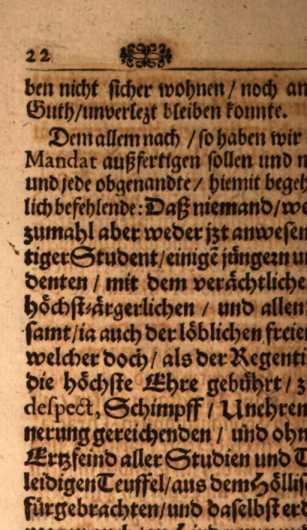 22
ben nicht sicher wohnen / noch an
Guth / unverlezt bleiben konnte.
Dem allem nach / so haben wir
Mandat außfertigen sollen und
und jede obgenandte / hiemit begeh
lich befehlende: Daß niemand / we
zumahl aber weder jzt anwesen
tiger Student / einigẽ jüngern
denten / mit dem verächtliche
höchst-ärgerlichen / und allen
samt / ia auch der löblichen freie
welcher doch / als der Regenti
die höchste Ehre gebührt / z
despect, Schimpff / Unehren
nerung gereichenden / und ohn
Ertzfeind aller Studien und T
leidigen Teuffel / aus dem Höllis
fürgebrachten / und daselbst er